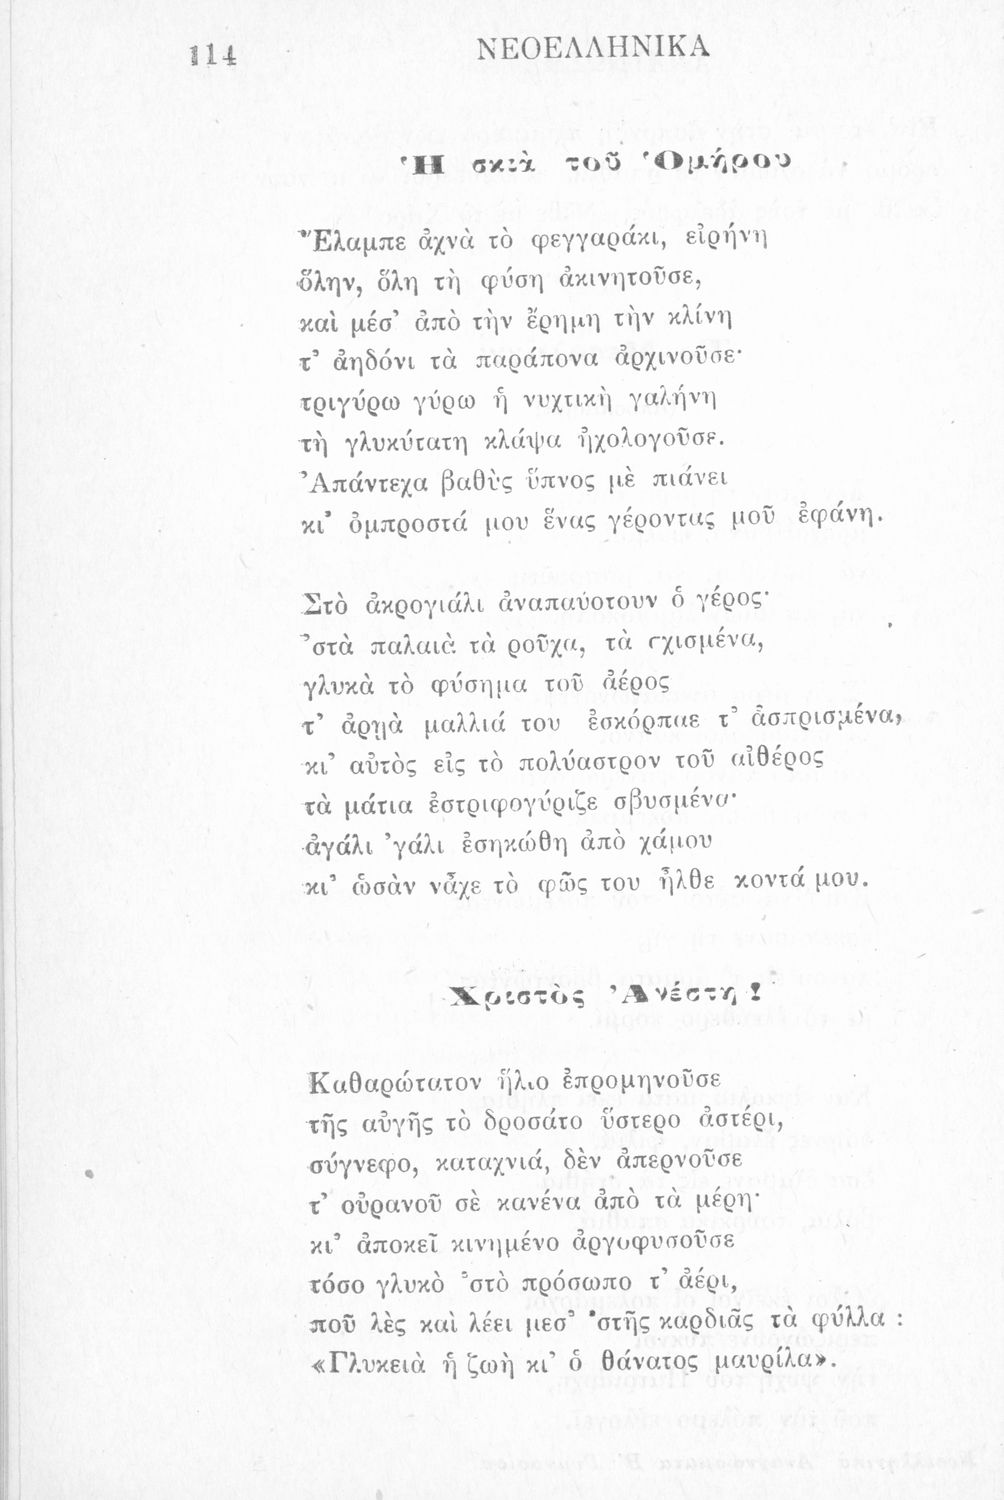 114
ΝΕΟΕΛΛΗΝΙΚΑ
Ἡ σκιὰ τοῦ Ὁμήρου
Ἔλαμπε ἀχνὰ τὸ φεγγαράκι, εἰρήνη
ὅλην, ὅλη τὴ φύση ἀκινητοῦσε,
καὶ μέσ’ ἀπὸ τὴν ἔρημη τὴν κλίνη
τ’ ἀηδόνι τὰ παράπονα ἀρχινοῦσε·
τριγύρω γύρω ἡ νυχτικὴ γαλήνη
τὴ γλυκύτατη κλάψα ἠχολογοῦσε.
Ἀπάντεχα βαθὺς ὕπνος μὲ πιάνει
κι’ ὀμπροστά μου ἕνας γέροντας μοῦ ἐφάνη.
Στὸ ἀκρογιάλι ἀναπαύοτουν ὁ γέρος·
’στὰ παλαιὰ τὰ ροῦχα, τὰ σχισμένα,
γλυκὰ τὸ φύσημα τοῦ ἀέρος
τ’ ἀρῃὰ μαλλιά του ἐσκόρπαε τ’ ἀσπρισμένα,
κι’ αὐτὸς εἰς τὸ πολύαστρον τοῦ αἰθέρος
τὰ μάτια ἐστριφογύριζε σβυσμένα·
ἀγάλι ’γάλι ἐσηκώθη ἀπὸ χάμου
κι’ ὡσὰν νἆχε τὸ φῶς του ἦλθε κοντά μου.
Χριστὸς Ἀνέστη!
Καθαρώτατον ἥλιο ἐπρομηνοῦσε
τῆς αὐγῆς τὸ δροσάτο ὕστερο ἀστέρι,
σύγνεφο, καταχνιά, δὲν ἀπερνοῦσε
τ’ οὐρανοῦ σὲ κανένα ἀπὸ τὰ μέρη·
κι’ ἀποκεῖ κινημένο ἀργοφυσοῦσε
τόσο γλυκὸ ’στὸ πρόσωπο τ’ ἀέρι,
ποῦ λὲς καὶ λέει μεσ’ ’στῆς καρδιᾶς τὰ φύλλα :
«Γλυκειὰ ἡ ζωὴ κι’ ὁ θάνατος μαυρίλα».